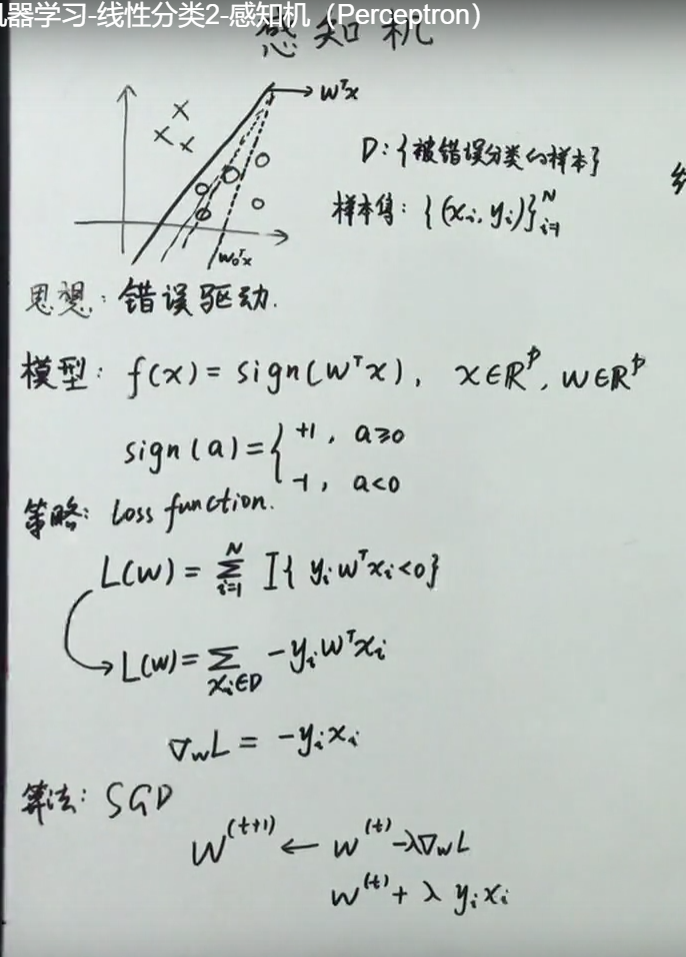 机器学习-线性分类2-感知机（Perceptron）
感知机
wᵀx
D：{被错误分类的样本}
样本集：{(xᵢ, yᵢ)}ᵢ₌₁ᴺ
w₀ᵀx
思想：错误驱动.
模型：f(x) = sign(wᵀx), x∈ℝᵖ, w∈ℝᵖ
sign(a) = { +1, a≥0
-1, a<0
策略：loss function.
L(w) = ∑ᵢ₌₁ᴺ I{yᵢwᵀxᵢ<0}
L(w) = ∑_{xᵢ∈D} -yᵢwᵀxᵢ
∇_w L = -yᵢxᵢ
算法：SGD
w⁽ᵗ⁺¹⁾ ← w⁽ᵗ⁾-λ∇_w L
w⁽ᵗ⁾ + λ yᵢxᵢ